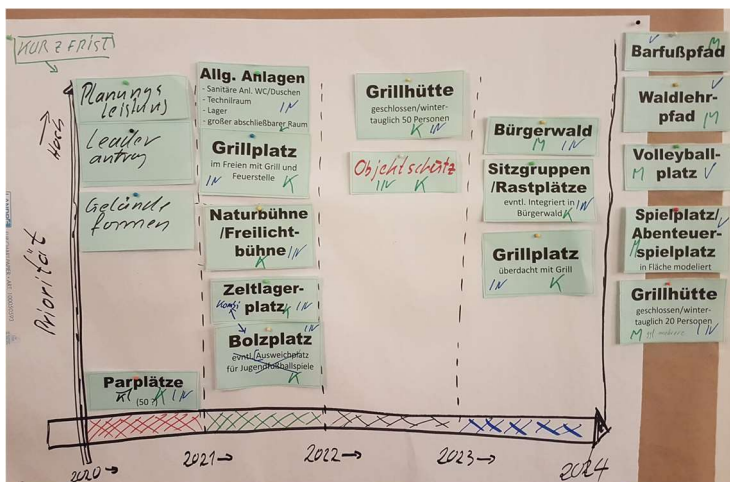 KURZFRIST
Hoch
Priorität
Planungs
leistung
Leader
antrag
Gelände
formen
Parplätze
(50 ?) K IN
Allg. Anlagen
- Sanitäre Anl. WC/Duschen
- Technilraum
- Lager
- großer abschließbarer Raum
IN
K
Grillplatz
im Freien mit Grill und
Feuerstelle
IN K
Naturbühne
/Freilicht-
bühne
K IN
Zeltlager-
platz
Kombi K IN
IN
Bolzplatz
evntl. Ausweichplatz
für Jugendfußballspiele
K
Grillhütte
geschlossen/winter-
tauglich 50 Personen
K IN
Objektschutz
IN K
Bürgerwald
M IN
Sitzgruppen
/Rastplätze
evntl. Integriert in
Bürgerwald
K IN
Grillplatz
überdacht mit Grill
IN K
Barfußpfad
V M
Waldlehr-
pfad
V M
Volleyball-
platz
M V
Spielplatz/
Abenteuer-
spielplatz
in Fläche modeliert
M V
Grillhütte
geschlossen/winter-
tauglich 20 Personen
M IN
2020
2021
2022
2023
2024